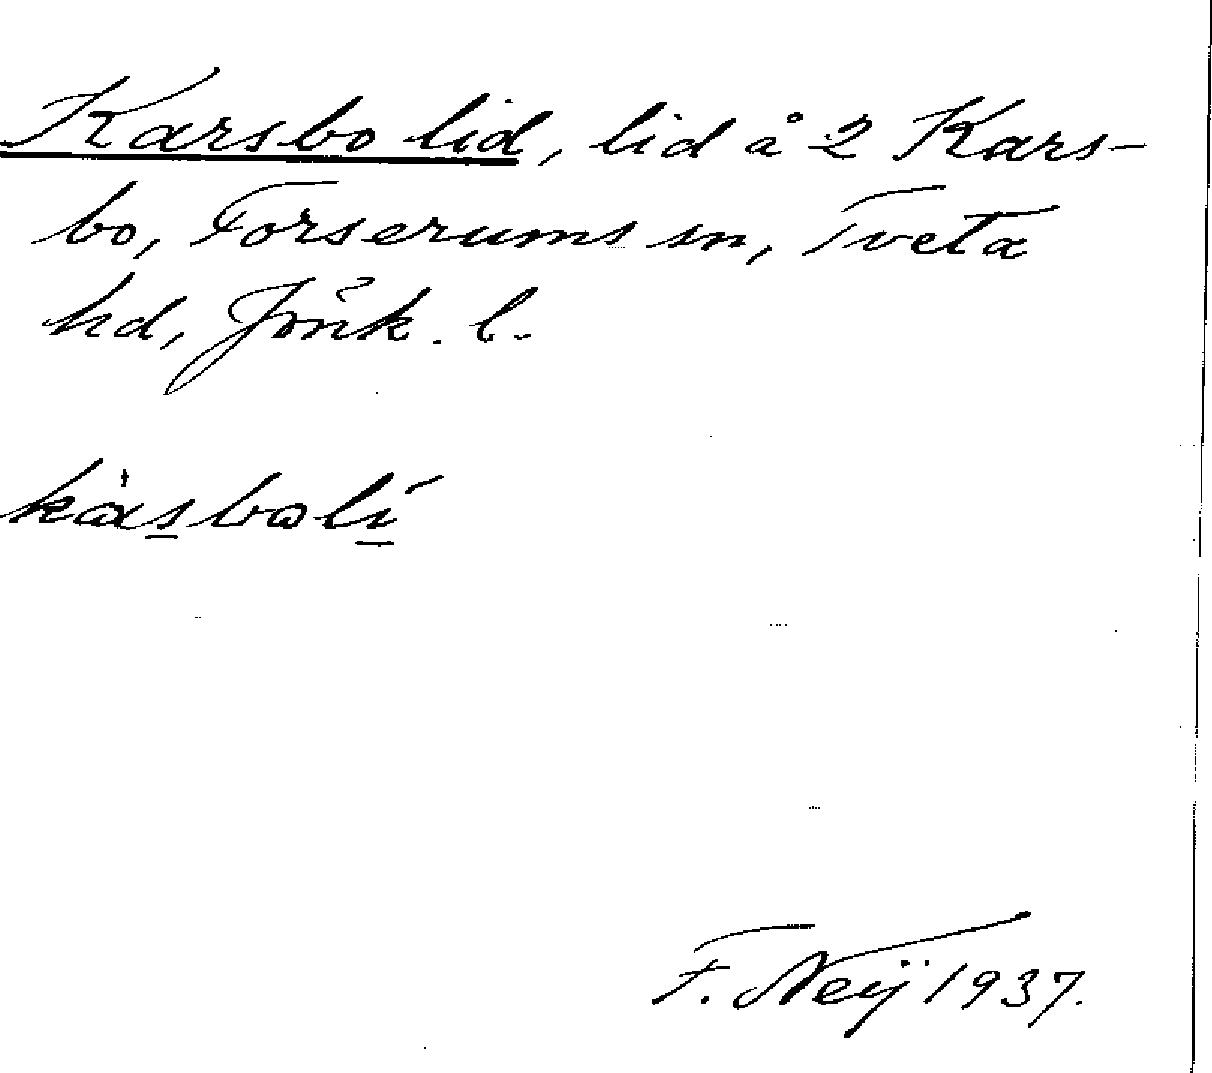 Karsbo lid, lid å 2 Kars-
bo, Forserums sn, Tveta
hd, Jönk. l.
F. Neij 1937.